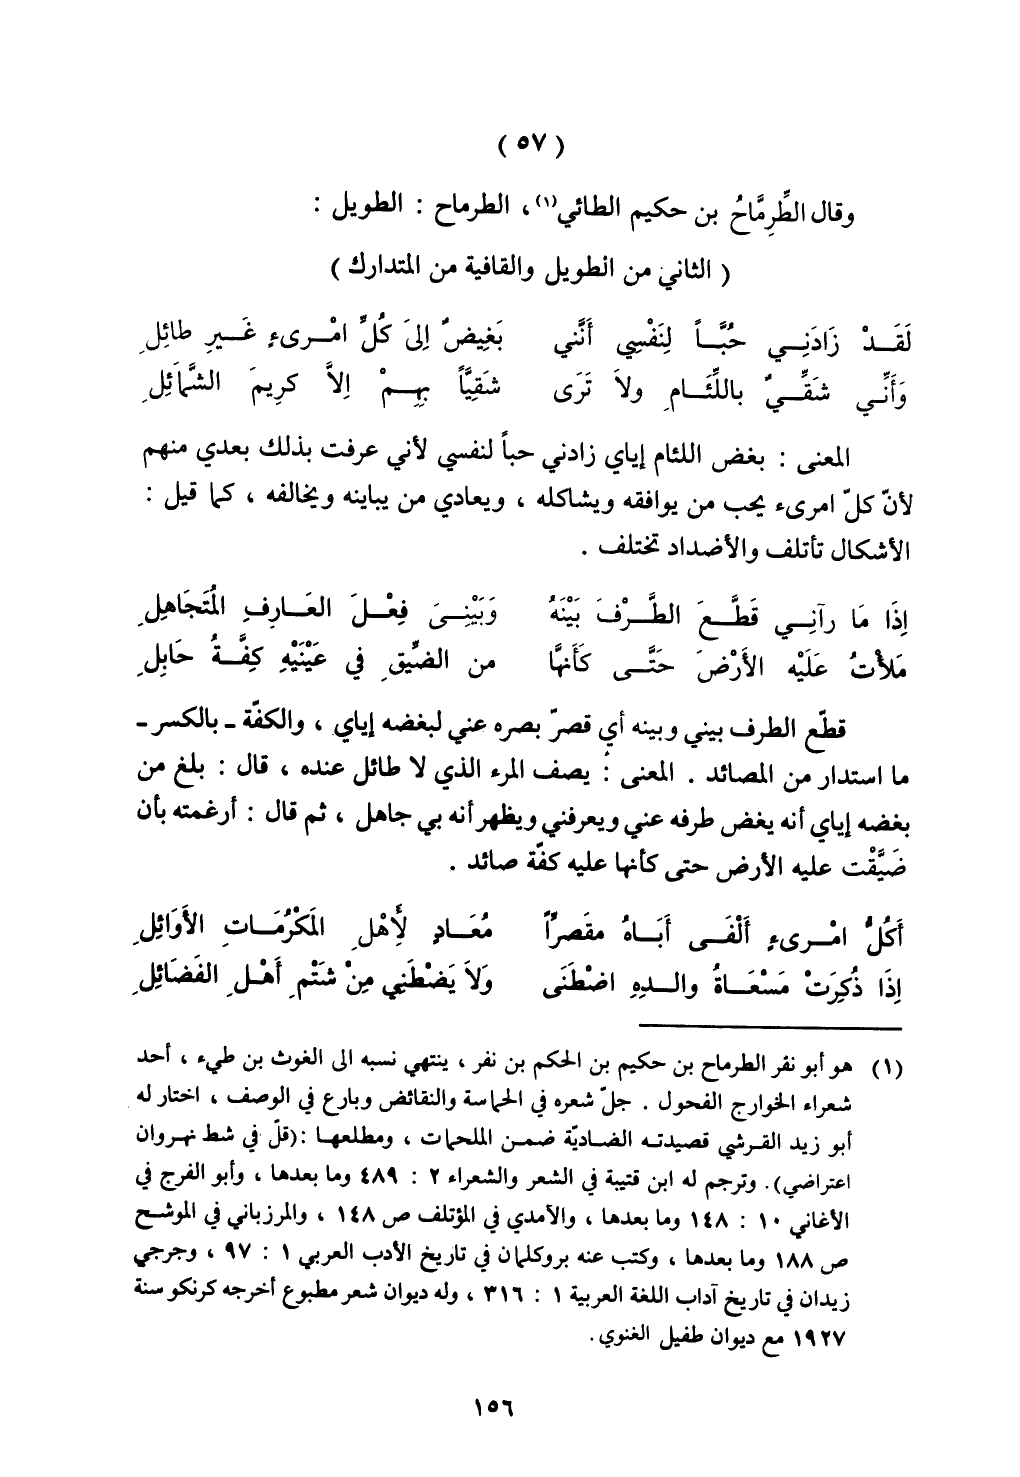 ( ٥٧ )
وقال الطِّرِمَّاحُ بن حكيم الطائي(١)، الطرماح : الطويل :
( الثاني من الطويل والقافية من المتدارك )
لَقَــدْ زَادَنِــي حُبَّــاً لِنَفْسِي أَنَّني بَغِيضٌ إلىَ كُلِّ امْــرىءٍ غَــيرِ طائِلِ
وَأَنِّــي شَقــيٌّ باللِّئَــامِ ولاَ تَرَى شقيَّاً بهِــمْ الاَّ كريمَ الشَّمائِلِ
المعنى : بغض اللئام إياي زادني حباً لنفسي لأني عرفت بذلك بعدي منهم
لأنّ كلّ امرىء يحب من يوافقه ويشاكله ، ويعادي من يباينه ويخالفه ، كما قيل :
الأشكال تأتلف والأضداد تختلف .
إذَا مَا رآنِــي قَطَّــعَ الطَّــرْفَ بَيْنَهُ وَبَيْنِــيَ فِعْــلَ العَــارِفِ المُتَجَاهِلِ
مَلأْتُ عَلَيْه الأَرْضَ حَتَّــى كَأنهَّا من الضيِّقِ في عَيْنَيْهِ كِفَّــةُ حَابِلِ
قطّع الطرف بيني وبينه أي قصرّ بصره عني لبغضه إياي ، والكفّة ـ بالكسر ـ
ما استدار من المصائد . المعنى : يصف المرء الذي لا طائل عنده ، قال : بلغ من
بغضه إياي أنه يغض طرفه عني ويعرفني ويظهر أنه بي جاهل ، ثم قال : أرغمته بأن
ضَيَّقْت عليه الأرض حتى كأنها عليه كفّة صائد .
أَكُلُّ امْــرىءٍ أَلْفَــى أَبَــاهُ مقَصراًّ مُعَــادٍ لأَهْلِ المَكْرُمَــاتِ الأَوَائِلِ
إذَا ذُكِرَتْ مَسْعَــاةُ والــدِهِ اضْطَنَى وَلاَ يَضْطَني مِنْ شَتْمِ أَهْــلِ الفَضَائِلِ
(١) هو أبو نفر الطرماح بن حكيم بن الحكم بن نفر ، ينتهي نسبه الى الغوث بن طيء ، أحد
شعراء الخوارج الفحول . جلّ شعره في الحماسة والنقائض وبارع في الوصف ، اختار له
أبو زيد القــرشي قصيدتــه الضاديّة ضمــن الملحمات ، ومطلعهــا :(قلّ في شط نهروان
اعتراضي). وترجم له ابن قتيبة في الشعر والشعراء ٢ : ٤٨٩ وما بعدها ، وأبو الفرج في
الأغاني ١٠ : ١٤٨ وما بعدها ، والآمدي في المؤتلف ص ١٤٨ ، والمرزباني في الموشــح
ص ١٨٨ وما بعدها ، وكتب عنه بروكلمان في تاريخ الأدب العربي ١ : ٩٧ ، وجرجي
زيدان في تاريخ آداب اللغة العربية ١ : ٣١٦ ، وله ديوان شعر مطبوع أخرجه كرنكو سنة
١٩٢٧ مع ديوان طفيل الغنوي.
١٥٦